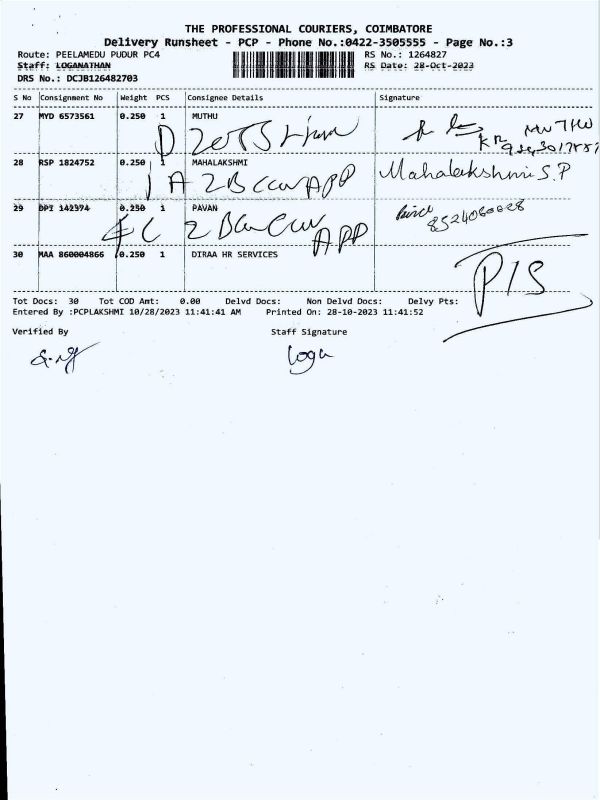 THE PROFESSIONAL COURIERS, COIMBATORE
Delivery Runsheet - PCP - Phone No.:0422-3505555 - Page No.:3
Route: PEELAMEDU PUDUR PC4 RS No.: 1264827
Staff: LOGANATHAN RS Date: 28-Oct-2023
DRS No.: DCJB126482703
S No Consignment No Weight PCS Consignee Details Signature
27 MYD 6573561 0.250 1 MUTHU
MUTHU
D
28 RSP 1824752 0.250 1 MAHALAKSHMI
Mahalakshmi S.P
1 A 2B APP
29 DPI 142374 0.250 1 PAVAN
8524060028
4C 2B APP
30 MAA 860004866 0.250 1 DIRAA HR SERVICES
P/S
Tot Docs: 30 Tot COD Amt: 0.00 Delvd Docs: Non Delvd Docs: Delvy Pts:
Entered By :PCPLAKSHMI 10/28/2023 11:41:41 AM Printed On: 28-10-2023 11:41:52
Verified By Staff Signature
Logu